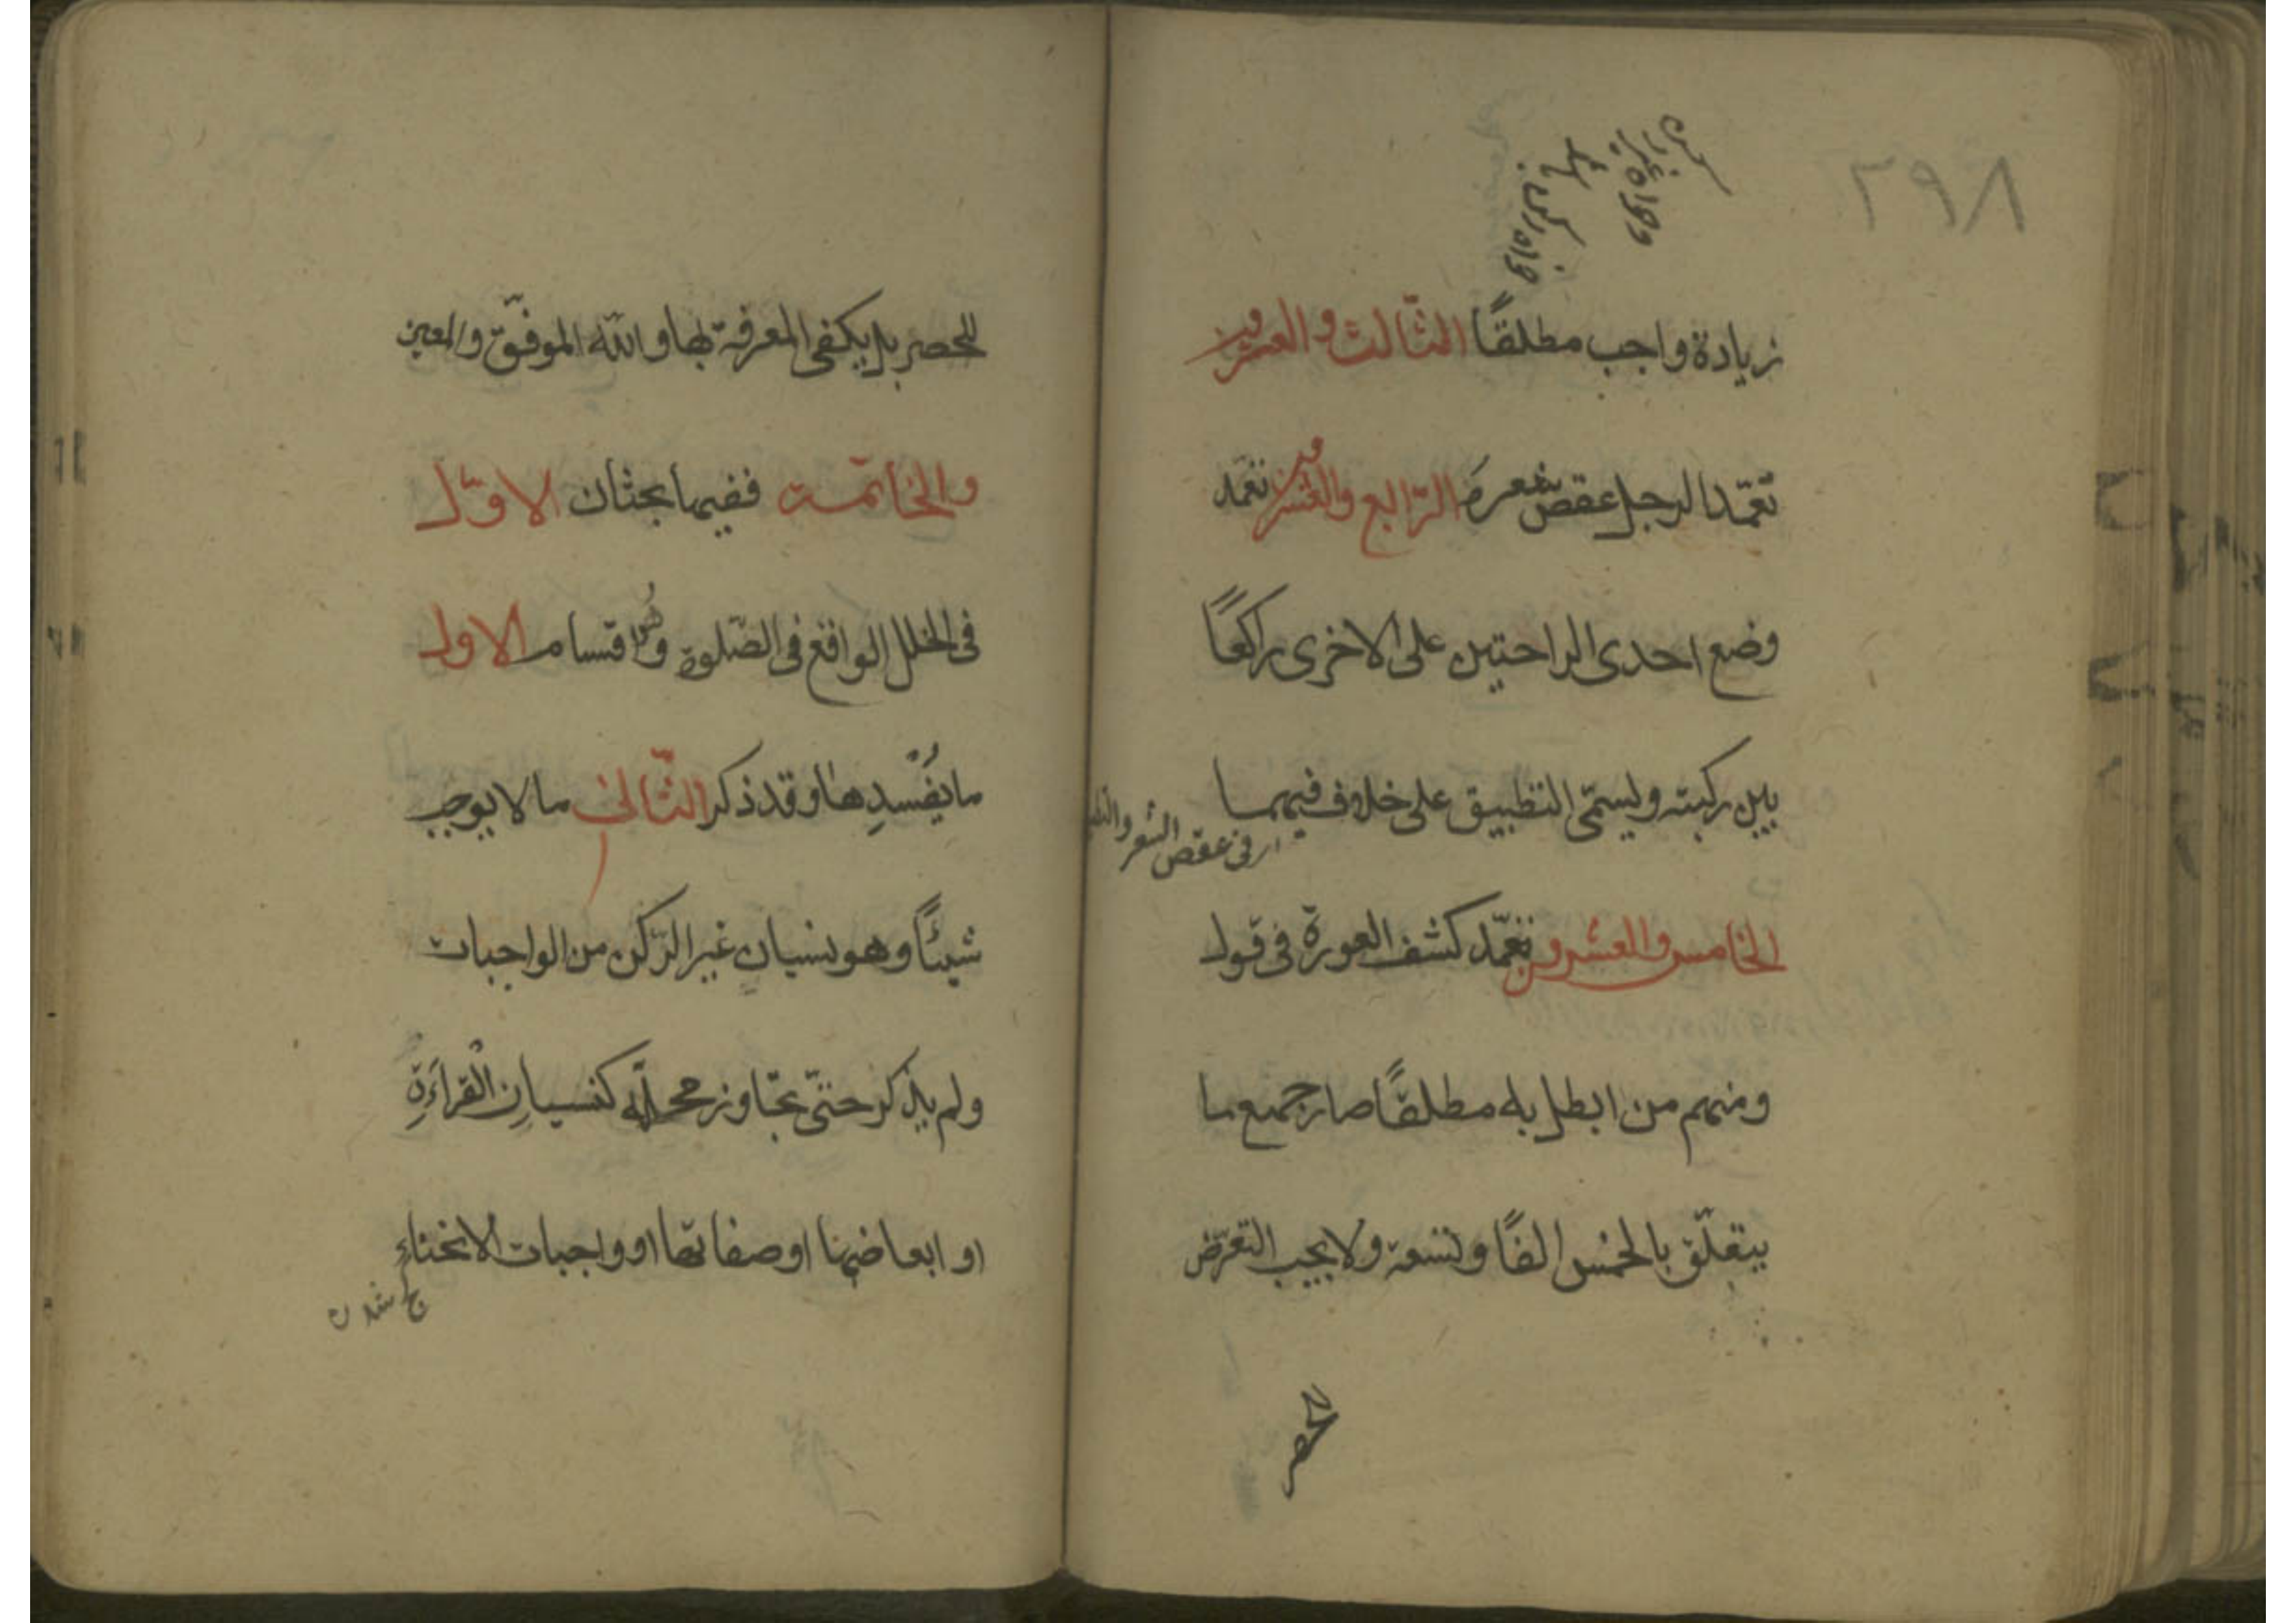 ٢٩٨
زيادة واجب مطلقًا الثّالث والعشرون
تعمّد الرجل عقص شعره الرّابع والعشرون تعمّد
وضع احدى الراحتين على الاخرى راكعًا
بين ركبته ويسمّى التطبيق على خلاف فيهما
ار فى عقص الشعر والتطبيق
الخامس والعشرون تعمّد كشف العورة فى قول
ومنهم من ابطل به مطلقًا صار جميع ما
يتعلّق بالخمس الفًا وتسعة ولا يجب التعرّض
للحصر بل يكفى المعرفة بها والله الموفّق والمعين
والخاتمة ففيها بحثان الاوّل
فى الخلل الواقع فى الصّلوة وهُو اقسام الاول
ما يُفْسدِها وقد ذكر الثّانى ما لا يوجب
شيئًا وهو نسيان غير الرّكن من الواجبات
ولم يذكر حتّى تجاوز محلّه كنسيانِ الْقراءَةِ
او ابعاضها او صفاتها او واجبات الانحناء